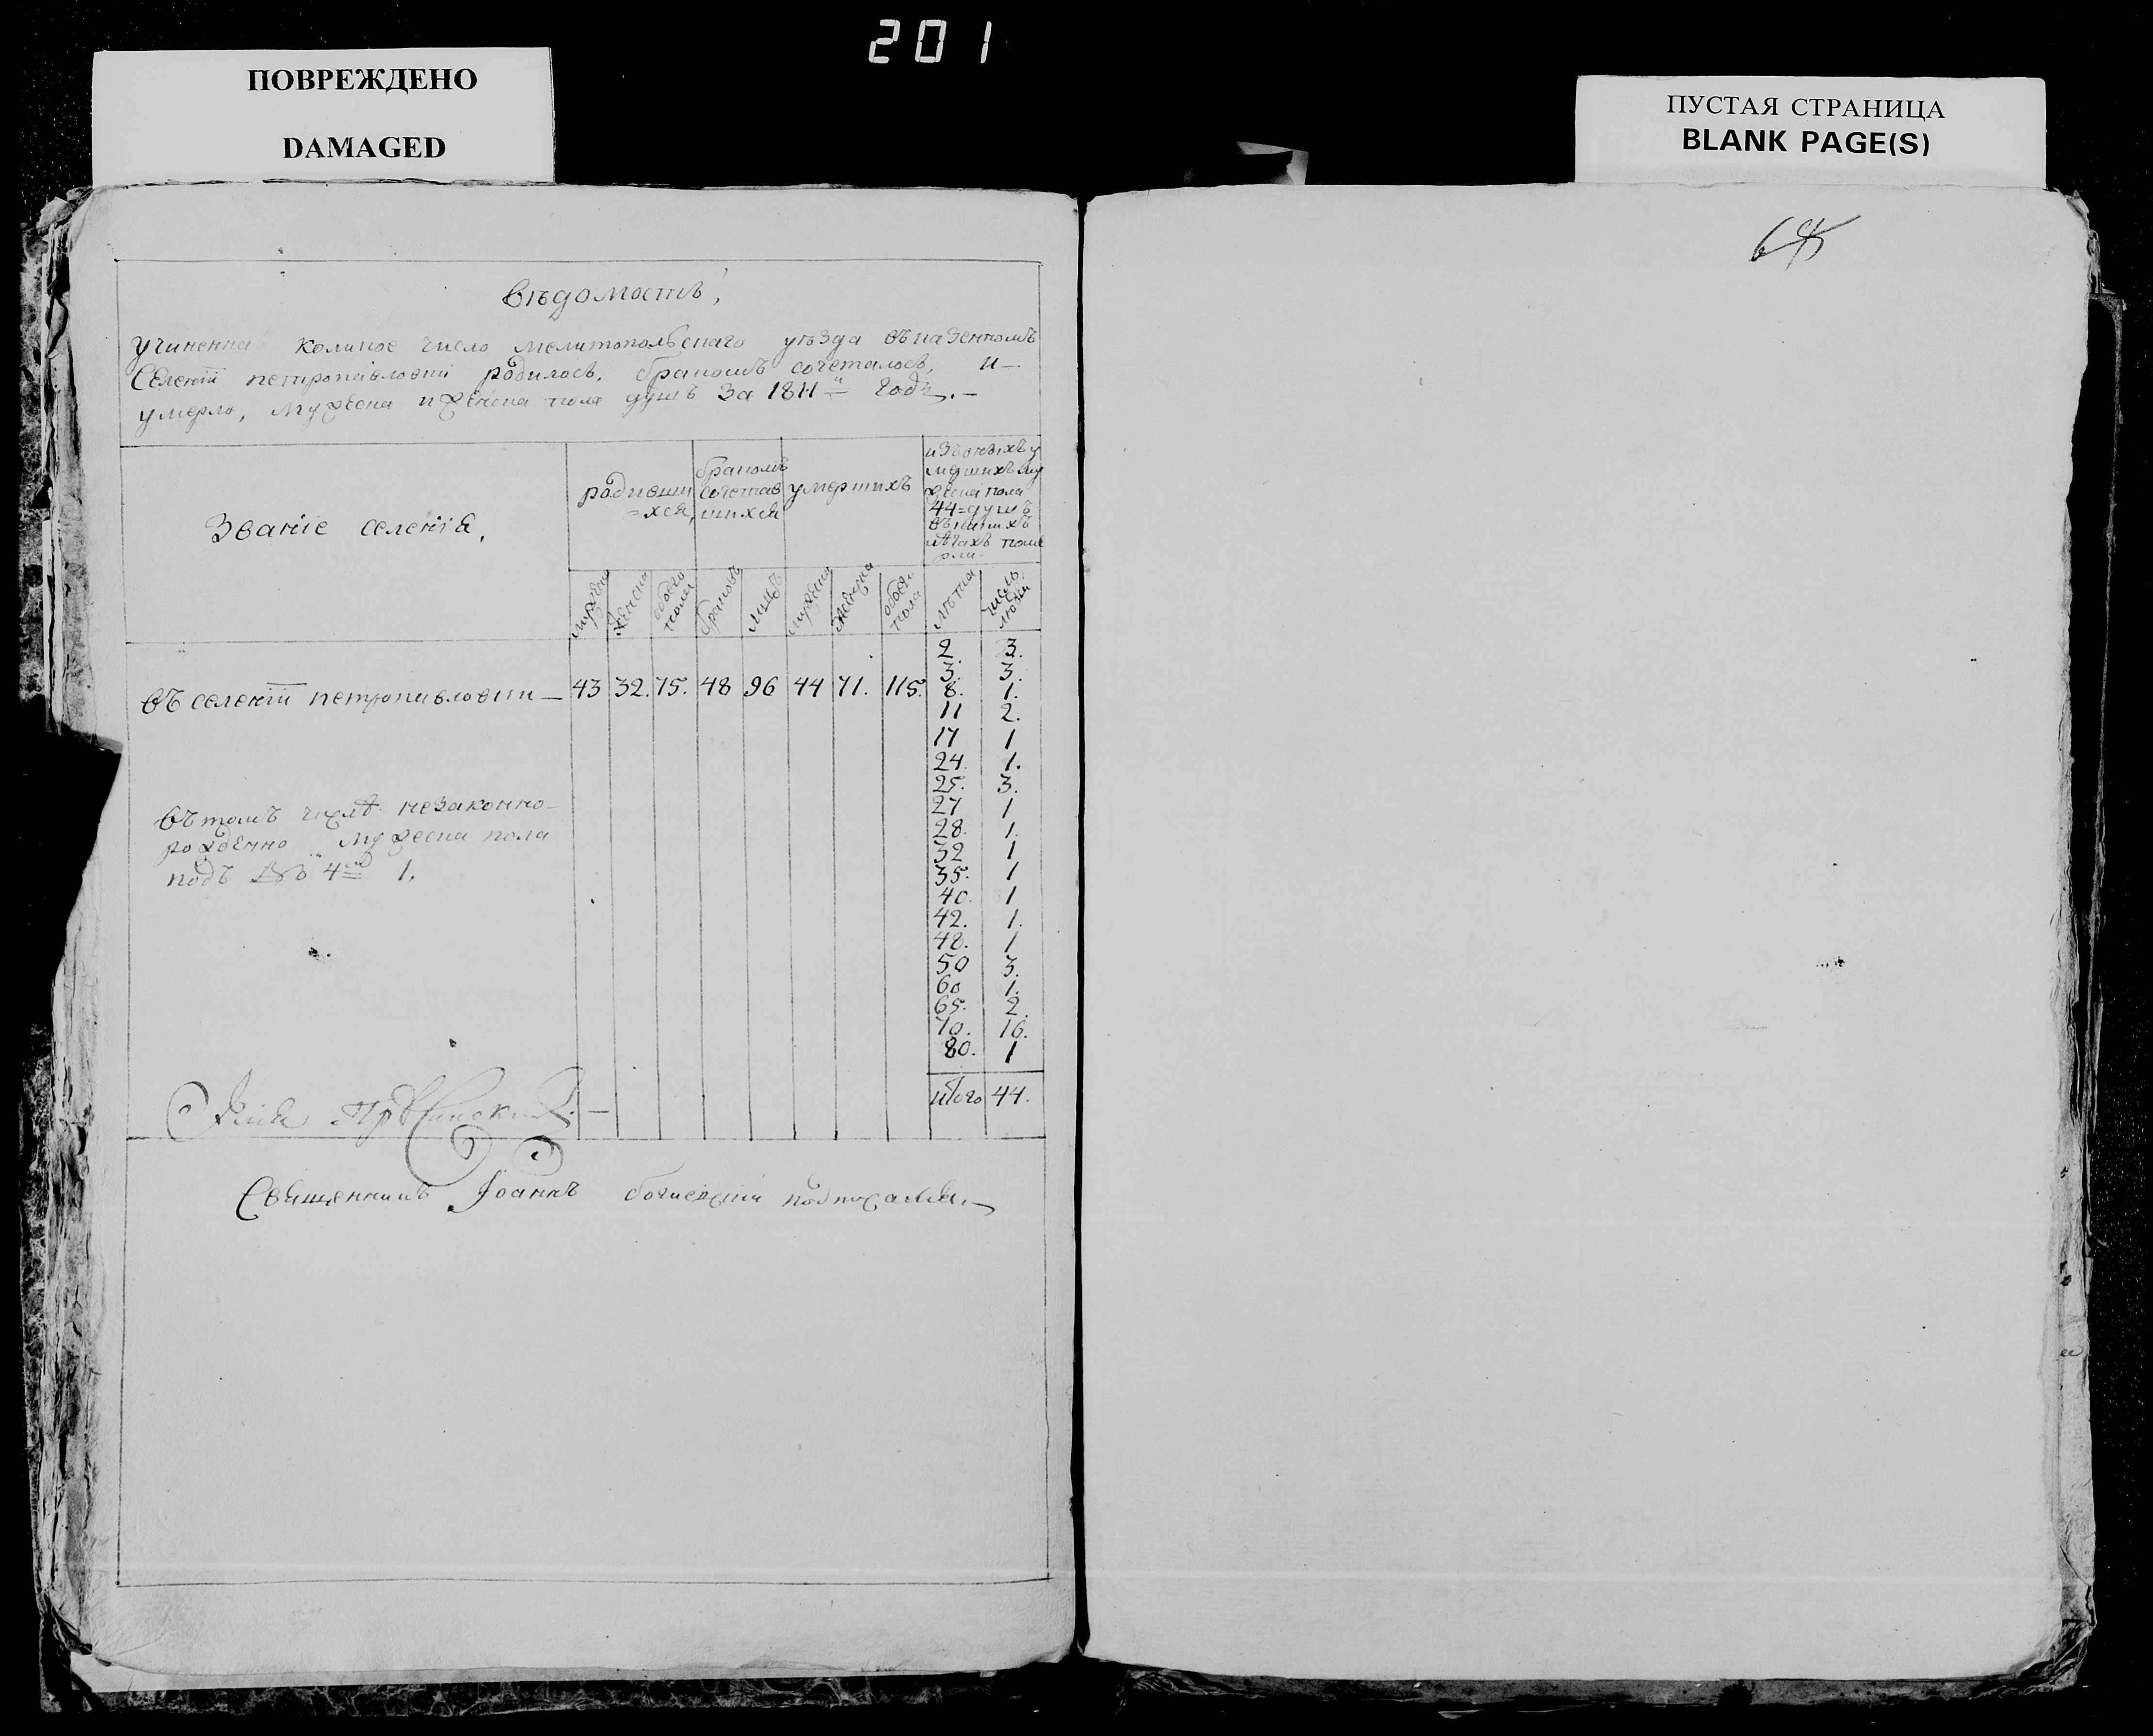 201
ПОВРЕЖДЕНО
DAMAGED
ПУСТАЯ СТРАНИЦА
BLANK PAGE(S)
Вѣдомость,
учиненна коликое число мелитопольскаго уѣзда въ казенномъ
селеніи петропавловки родилось, бракомъ сочеталось, и
умерло, мужеска и женска пола душъ за 1811й годъ.
Званіе селенія,
родивши
=хся,
бракомъ
сочетав
шихся
умершихъ
изъ оныхъ у
мершихъ му
жеска пола
44=душъ
въ какихъ
лѣтахъ поме
рли.
мужеска
женска
обоего
пола
браковъ
лицъ
мужеска
женска
обоего
пола
лѣтна
число
людей
въ селеніи петропавловки — 43 32. 75. 48 96 44 71. 115.
2. 3.
3. 3.
8. 1.
11 2.
17 1
24. 1.
25. 3.
27 1
28. 1.
32 1
35. 1
40. 1
42. 1.
48. 1
50 3.
60 1.
65. 2.
70. 16.
80. 1
итого 44.
въ томъ числѣ незаконно
рожденно мужеска пола
подъ № 4мъ 1.
Священникъ Іоаннъ подписался.